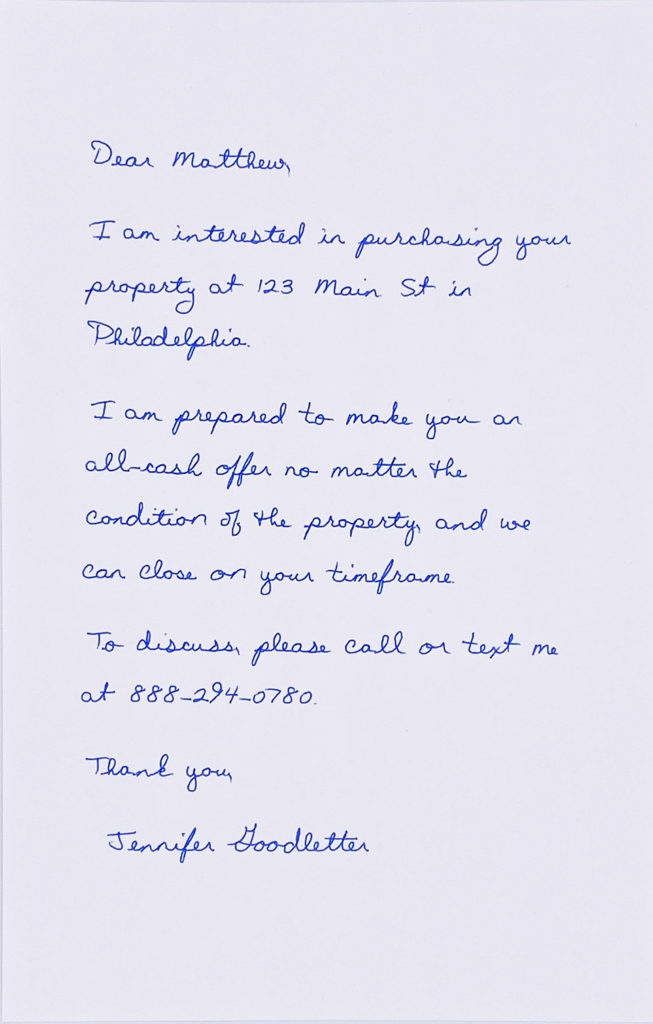 Dear Matthew,
I am interested in purchasing your
property at 123 Main St in
Philadelphia.
I am prepared to make you an
all-cash offer no matter the
condition of the property, and we
can close on your timeframe.
To discuss, please call or text me
at 888-294-0780.
Thank you,
Jennifer Goodletter